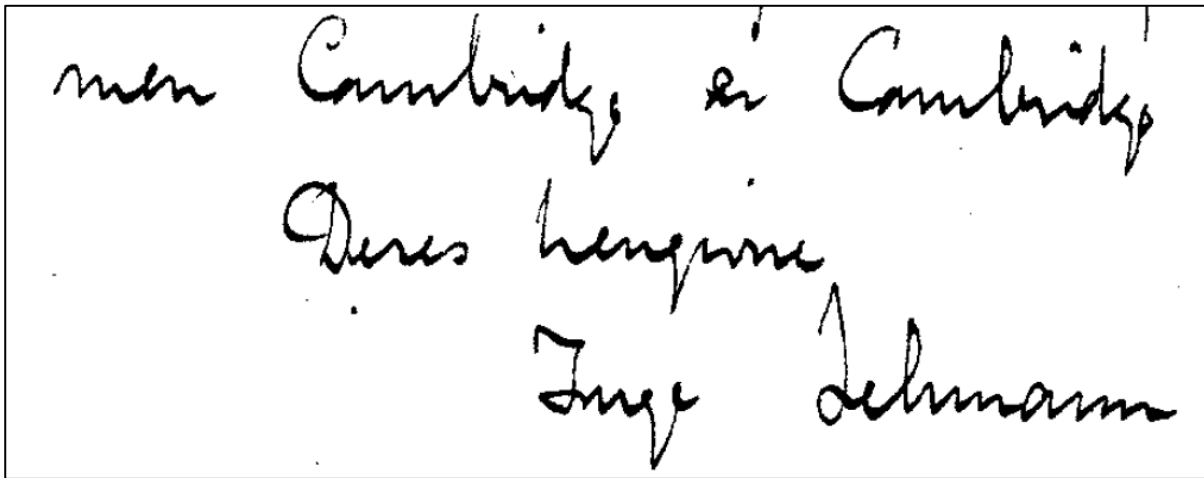 men Cambridge er Cambridge
Deres hengivne
Inge Lehmann